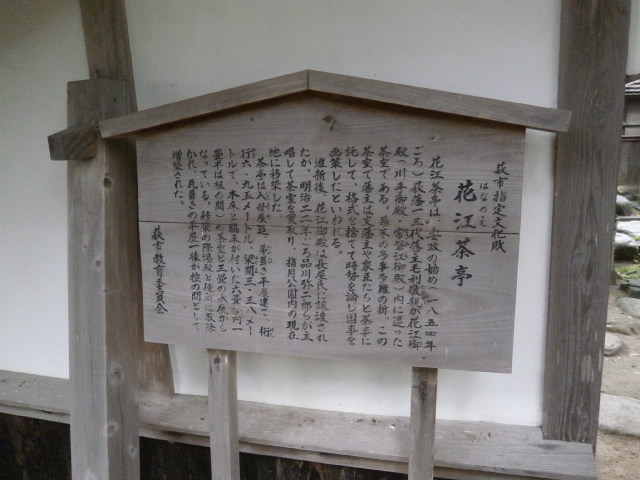 萩市指定文化財
はなのえ
花江茶亭
花江茶亭は、安政の始め(一八五四年
ごろ)萩藩十三代藩主毛利敬親が花江御
殿(川手御殿、常磐江御殿)内に造った
茶室である。幕末の多事多難の折、この
茶室で藩主は支藩主や家臣たちと茶事に
託して、格式を捨てて時勢を論じ国事を
画策したといわれる。
維新後、花江御殿は長屋氏に譲渡され
たが、明治二二年ごろ品川弥二郎らが主
唱して茶室を買取り、指月公園内の現在
地に移築した。
茶亭は入母屋造、茅葺き平屋建で、桁
行六・九五メートル、梁間三・三八メー
トルで、本床と脇床が付いた六畳(内一
畳半は板の間)の茶室と三畳の水屋から
なっている。移築の際湯殿と便所は取除
かれ、瓦葺きの平屋一棟が控の間として
増築された。
萩市教育委員会